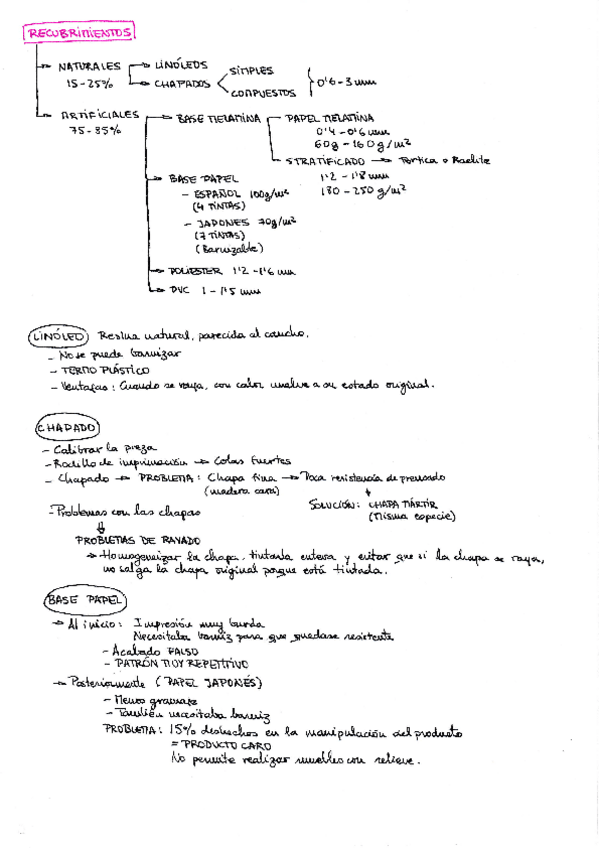 RECUBRIMIENTOS
NATURALES → LINÓLEOS
15-25% → CHAPADOS < SIMPLES
COMPUESTOS } 0'6-3 mm
ARTIFICIALES → BASE MELAMINA → PAPEL MELAMINA
75-85%
0'4-0'6 mm
60g-160g/m²
STRATIFICADO → Formica o Railite
1'2-1'8 mm
180-250 g/m²
→ BASE PAPEL
- ESPAÑOL 100g/m²
(4 TINTAS)
- JAPONES 70g/m²
(7 TINTAS)
(Barnizable)
→ POLIESTER 1'2-1'6 mm
→ PVC 1-1'5 mm
LINÓLEO Resina natural, parecida al caucho.
- No se puede barnizar
- TERMO PLÁSTICO
- Ventajas: Cuando se raya, con calor vuelve a su estado original.
CHAPADO
- Calibrar la pieza
- Rodillo de imprimación → Colas fuertes
- Chapado → PROBLEMA: Chapa fina → Poca resistencia de prensado
(madera cara)
SOLUCIÓN: CHAPA MÁRTIR
(Misma especie)
- Problemas con las chapas
PROBLEMAS DE RAYADO
→ Homogeneizar la chapa, tintarla entera y evitar que si la chapa se raya,
no salga la chapa original porque está tintada.
BASE PAPEL
→ Al inicio: Impresión muy burda
Necesitaba barniz para que quedase resistente
- Acabado FALSO
- PATRÓN MUY REPETITIVO
→ Posteriormente (PAPEL JAPONÉS)
- Menos gramaje
- También necesitaba barniz
PROBLEMA: 15% deshechos en la manipulación del producto
= PRODUCTO CARO
No permite realizar muebles con relieve.